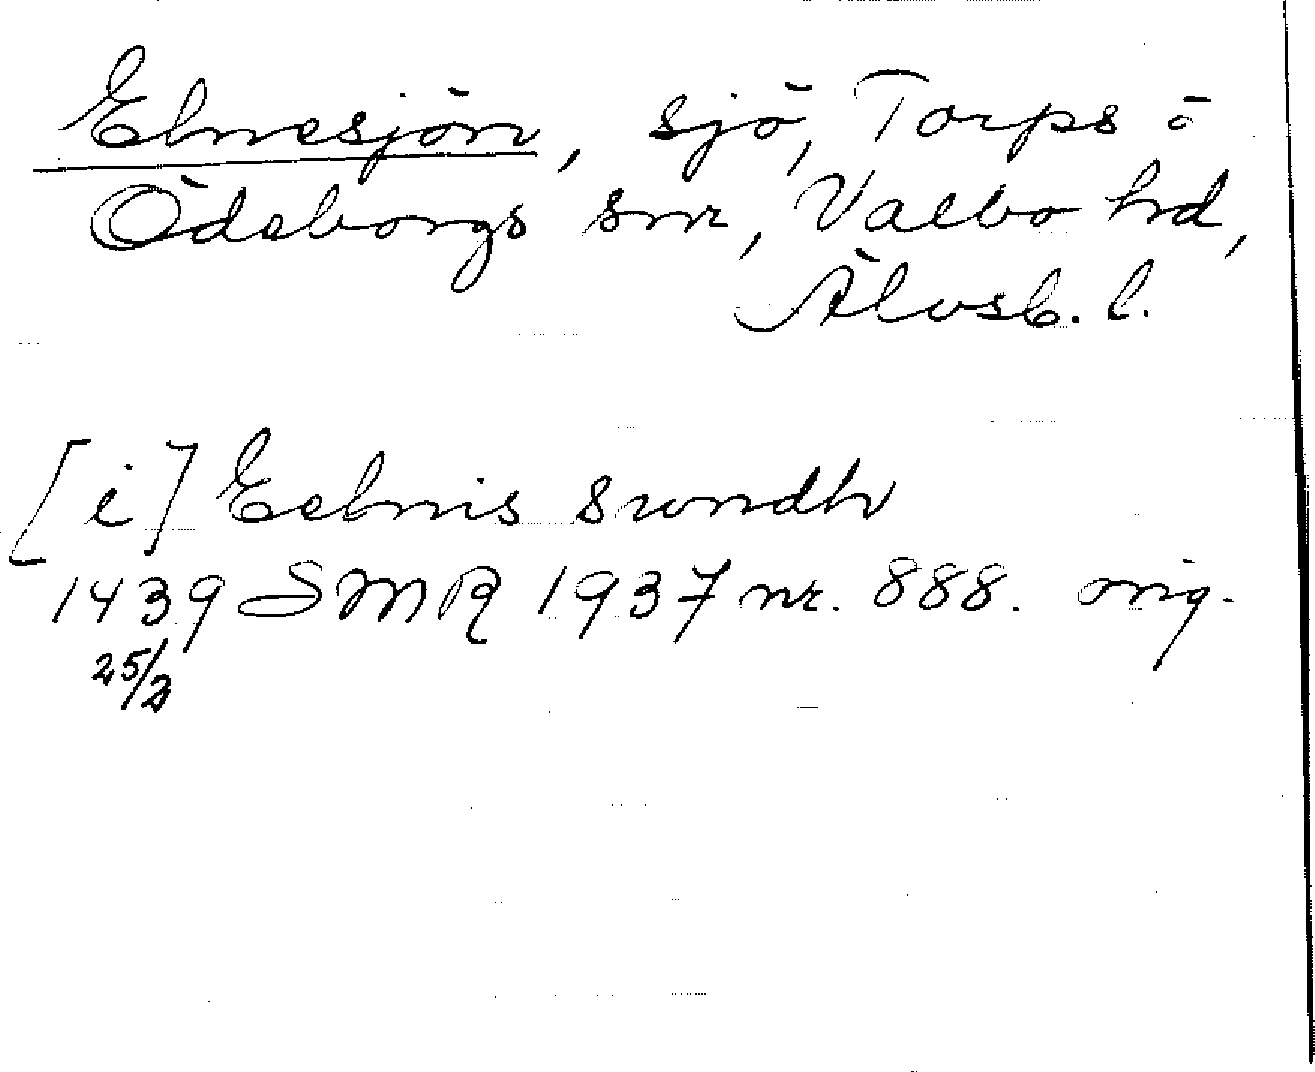 Elmesjön, sjö, Torps o
Ödeborgs snr, Valbo hd,
Älvsb. l.
[i] Eelmis sundh
1439 SMR 1937 nr. 888. orig.
25/2